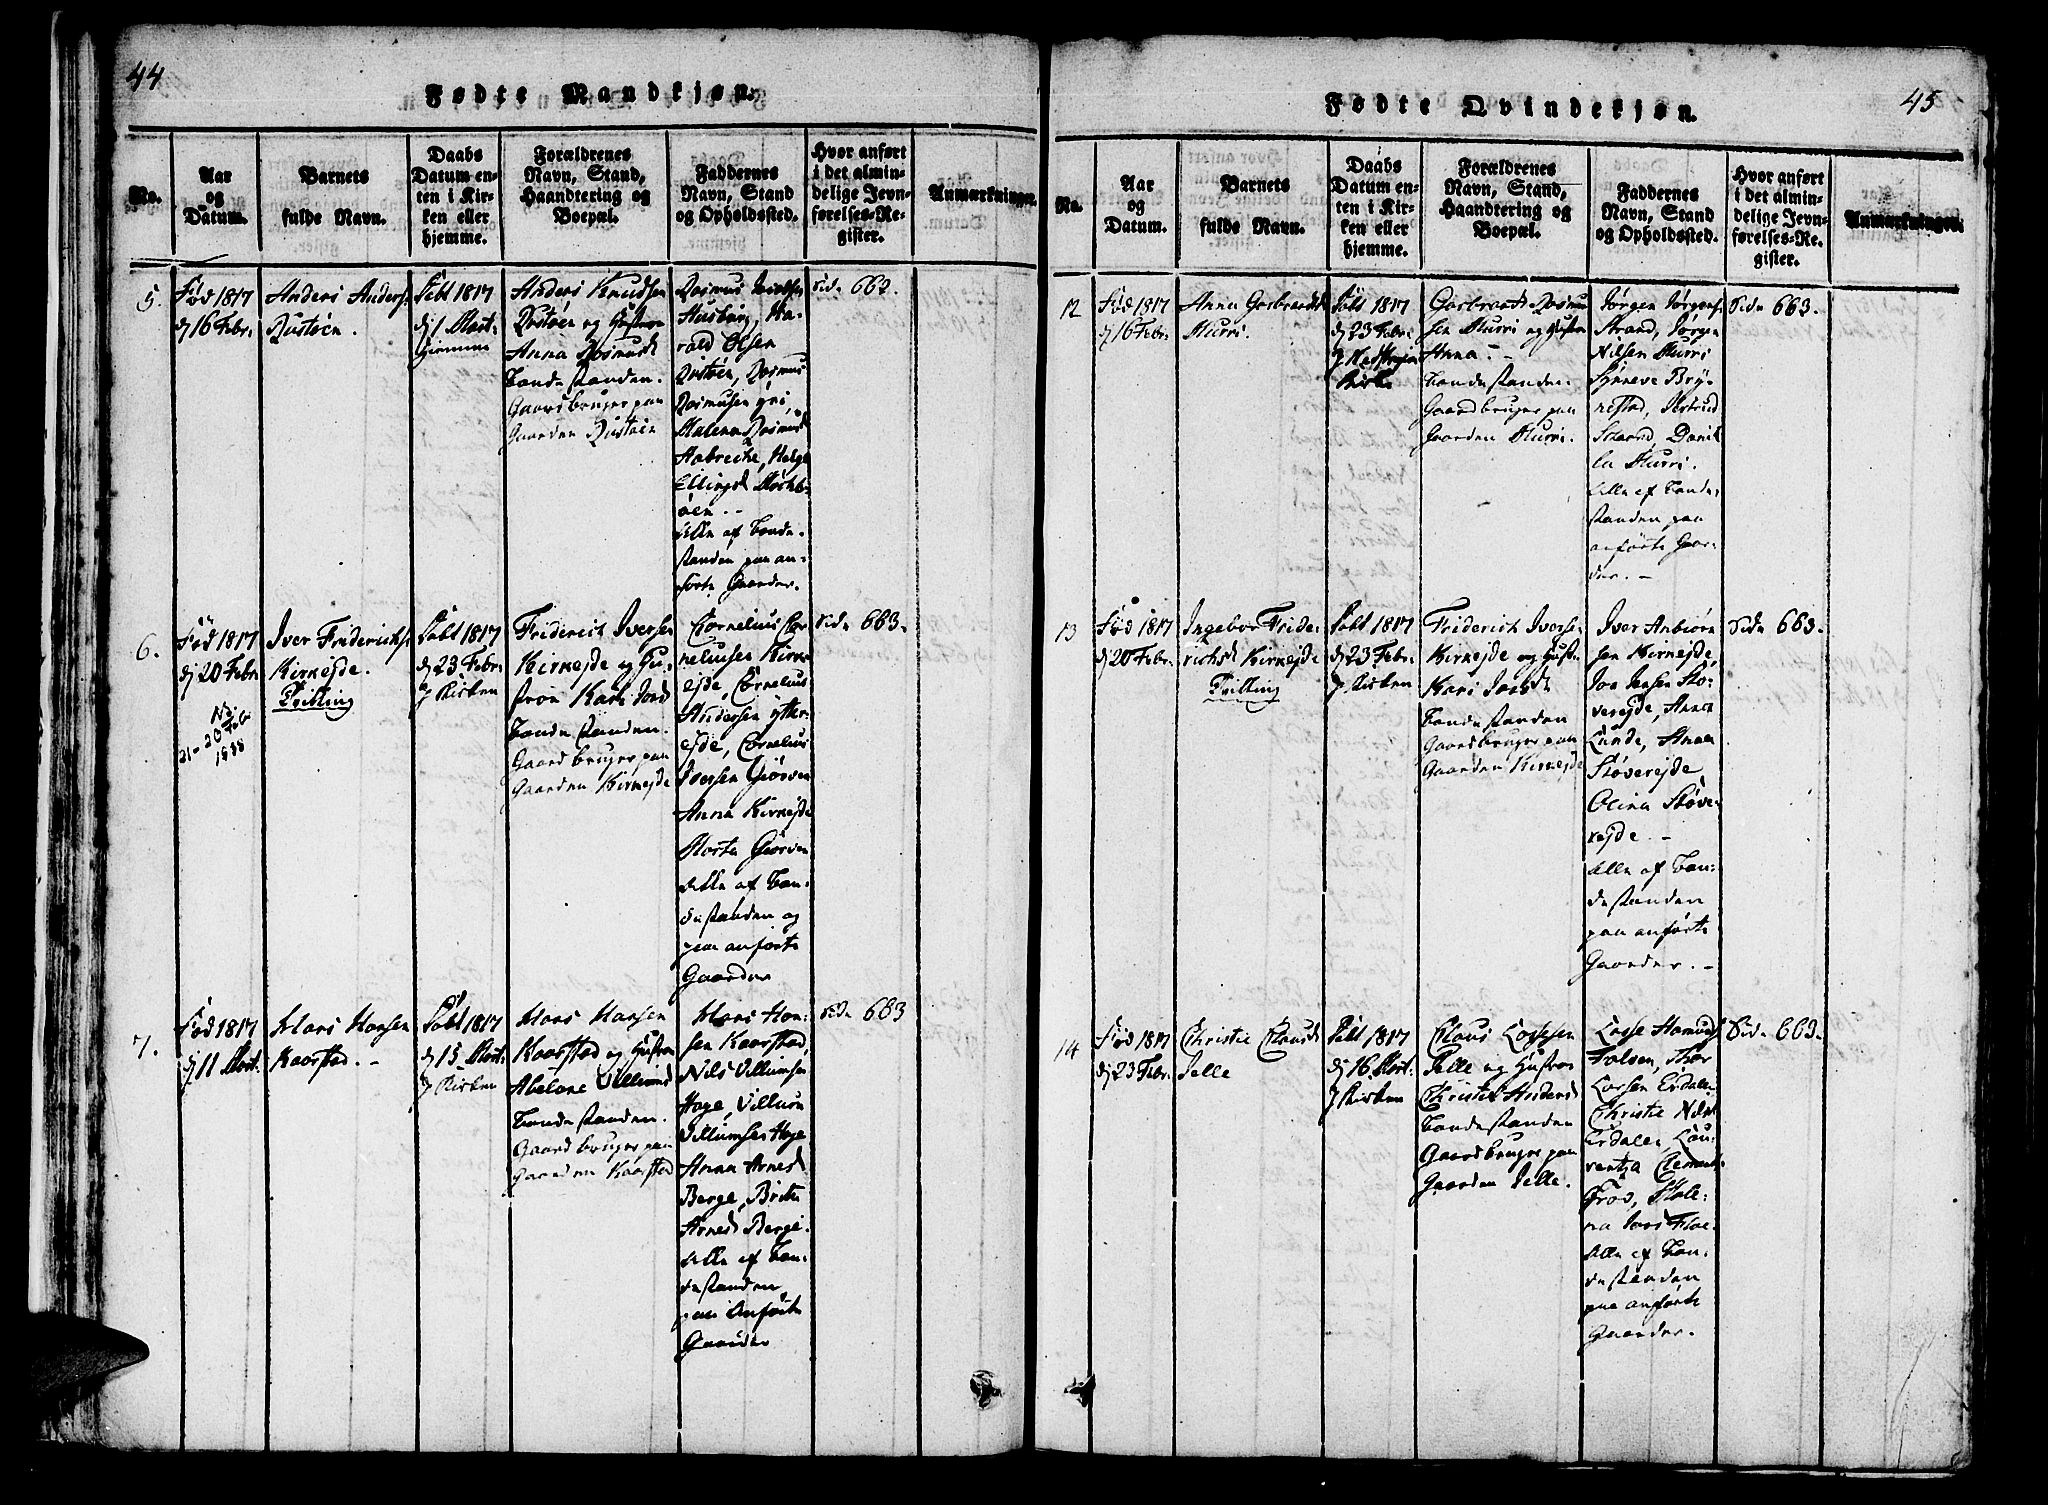 44
Fødte Mandkjøn.
No.
Aar
og
Datum.
Barnets
fulde Navn.
Daabs
Datum en-
ten i Kir-
ken eller
hjemme.
Forældrenes
Navn, Stand,
Haandtering og
Boepæl.
Faddernes
Navn, Stand
og Opholdssted.
Hvor anført
i det almin-
delige Jevn-
førelses-Re-
gister.
Anmærkninger.
5.
Fød 1817
d 16 Febr.
Anders Anders.
Rustøen.
Døbt 1817
d 1 Mart.
hjemme
Anders Knudsen
Rustøen og Hustroe
Anna Rasmusd
Bondestanden.
Gaardbruger paa
Gaarden Rustøen
Rasmus
Husbuy, Ha-
rald Olsen
Rustøen, Rasmus
Rasmusen
Malena Rasmusd
Aabrecke, Helge
Ellingsd
øen. --
Alle af Bonde-
standen paa an-
førte Gaarder.
Side 662.
6.
Fød 1817
d 20 Febr
21-20 Feb
1888
Iver Friderichs.
Kirkeide.
Tvilling
Døbt 1817
d 23 Febr
i Kirken
Friderich Iversen
Kirkejde og Hu-
stroe Kari Joesd
Bondestanden.
Gaardbruger paa
Gaarden Kirkejde
Cornelius Cor-
neliusen Kirk-
ejde, Cornelius
Andersen ytter-
ejde, Cornelius
Iversen Giørven
Anna Kirkejde
Marta Giørven
Alle af Bon-
destanden og
paa anførte
Gaarder
Side 663.
7.
Fød 1817
d 11 Mart.
Hans Hansen
Kaarstad. -
Døbt 1817
d 15 Mart.
i Kirken
Hans Hansen
Kaarstad og Hustroe
Abelone Villumsd
Bondestanden.
Gaardbruger paa
Gaarden Kaarstad
Hans Han-
sen Kaarstad,
Nils Villumsen
Hage, Villum
Villumsen Hage
Anna Arnesd
Berge, Brita
Arnesd Berge.
Alle af Bon-
destanden
paa Anførte
Gaarder
Side 663
45
Fødte Qvindekjøn.
No.
Aar
og
Datum.
Barnets
fulde Navn.
Daabs
Datum en-
ten i Kir-
ken eller
hjemme.
Forældrenes
Navn, Stand,
Haandtering og
Boepæl.
Faddernes
Navn, Stand
og Opholdssted.
Hvor anført
i det almin-
delige Jevn-
førelses-Re-
gister.
Anmærkninger.
12
Fød 1817
d 16 Febr.
Anna Garbrandsd
Murri.
Døbt 1817
d 23 Febr.
i
Kirke
Garbrandt Rasmu-
sen Murri og Hustroe
Anna. -
Bondestanden.
Gaardbruger paa
Gaarden Murri.
Jørgen Jørgens.
Strand, Jørgen
Nilsen Murri
Synneve Bry-
nestad, Gertrud
Schaard, Dani-
la Murri.
Alle af Bonde-
standen paa
anførte Gaar-
der. -
Side 663.
13
Fød 1817
d 20 Febr.
Ingebor Fride-
richsd Kirkejde
Tvilling
Døbt 1817
d 23 Febr
i Kirken
Friderich Iverse-
Kirkejde og Hustr.
Kari Joesd
Bondestanden
Gaardbruger paa
Gaarden Kirkejde
Iver Anbiørn
sen Kirkejde,
Joe Jensen Stø-
verejde, Anna
Lunde, Anna
Støverejde
Olina Støve-
rejde. -
Alle af Bon-
destanden
paa anførte
Gaarder. -
Side 663.
14
Fød 1817
d 23 Febr.
Christie Clausd
Selle
Døbt 1817
d 16 Mart.
i Kirken
Claus Lassesen
Selle og Hustroe
Christie Andersd
Bondestanden
Gaardbruger paa
Gaarden Selle.
Lasse
Folven, Thor
Larsen Erdalen
Christie Nilsd
Erdalen, Lau-
rentza Clements.
Frøs, Male-
na Joesd Floe.
Alle af Bon-
destanden
paa anførte
Gaarder.
Side 663.